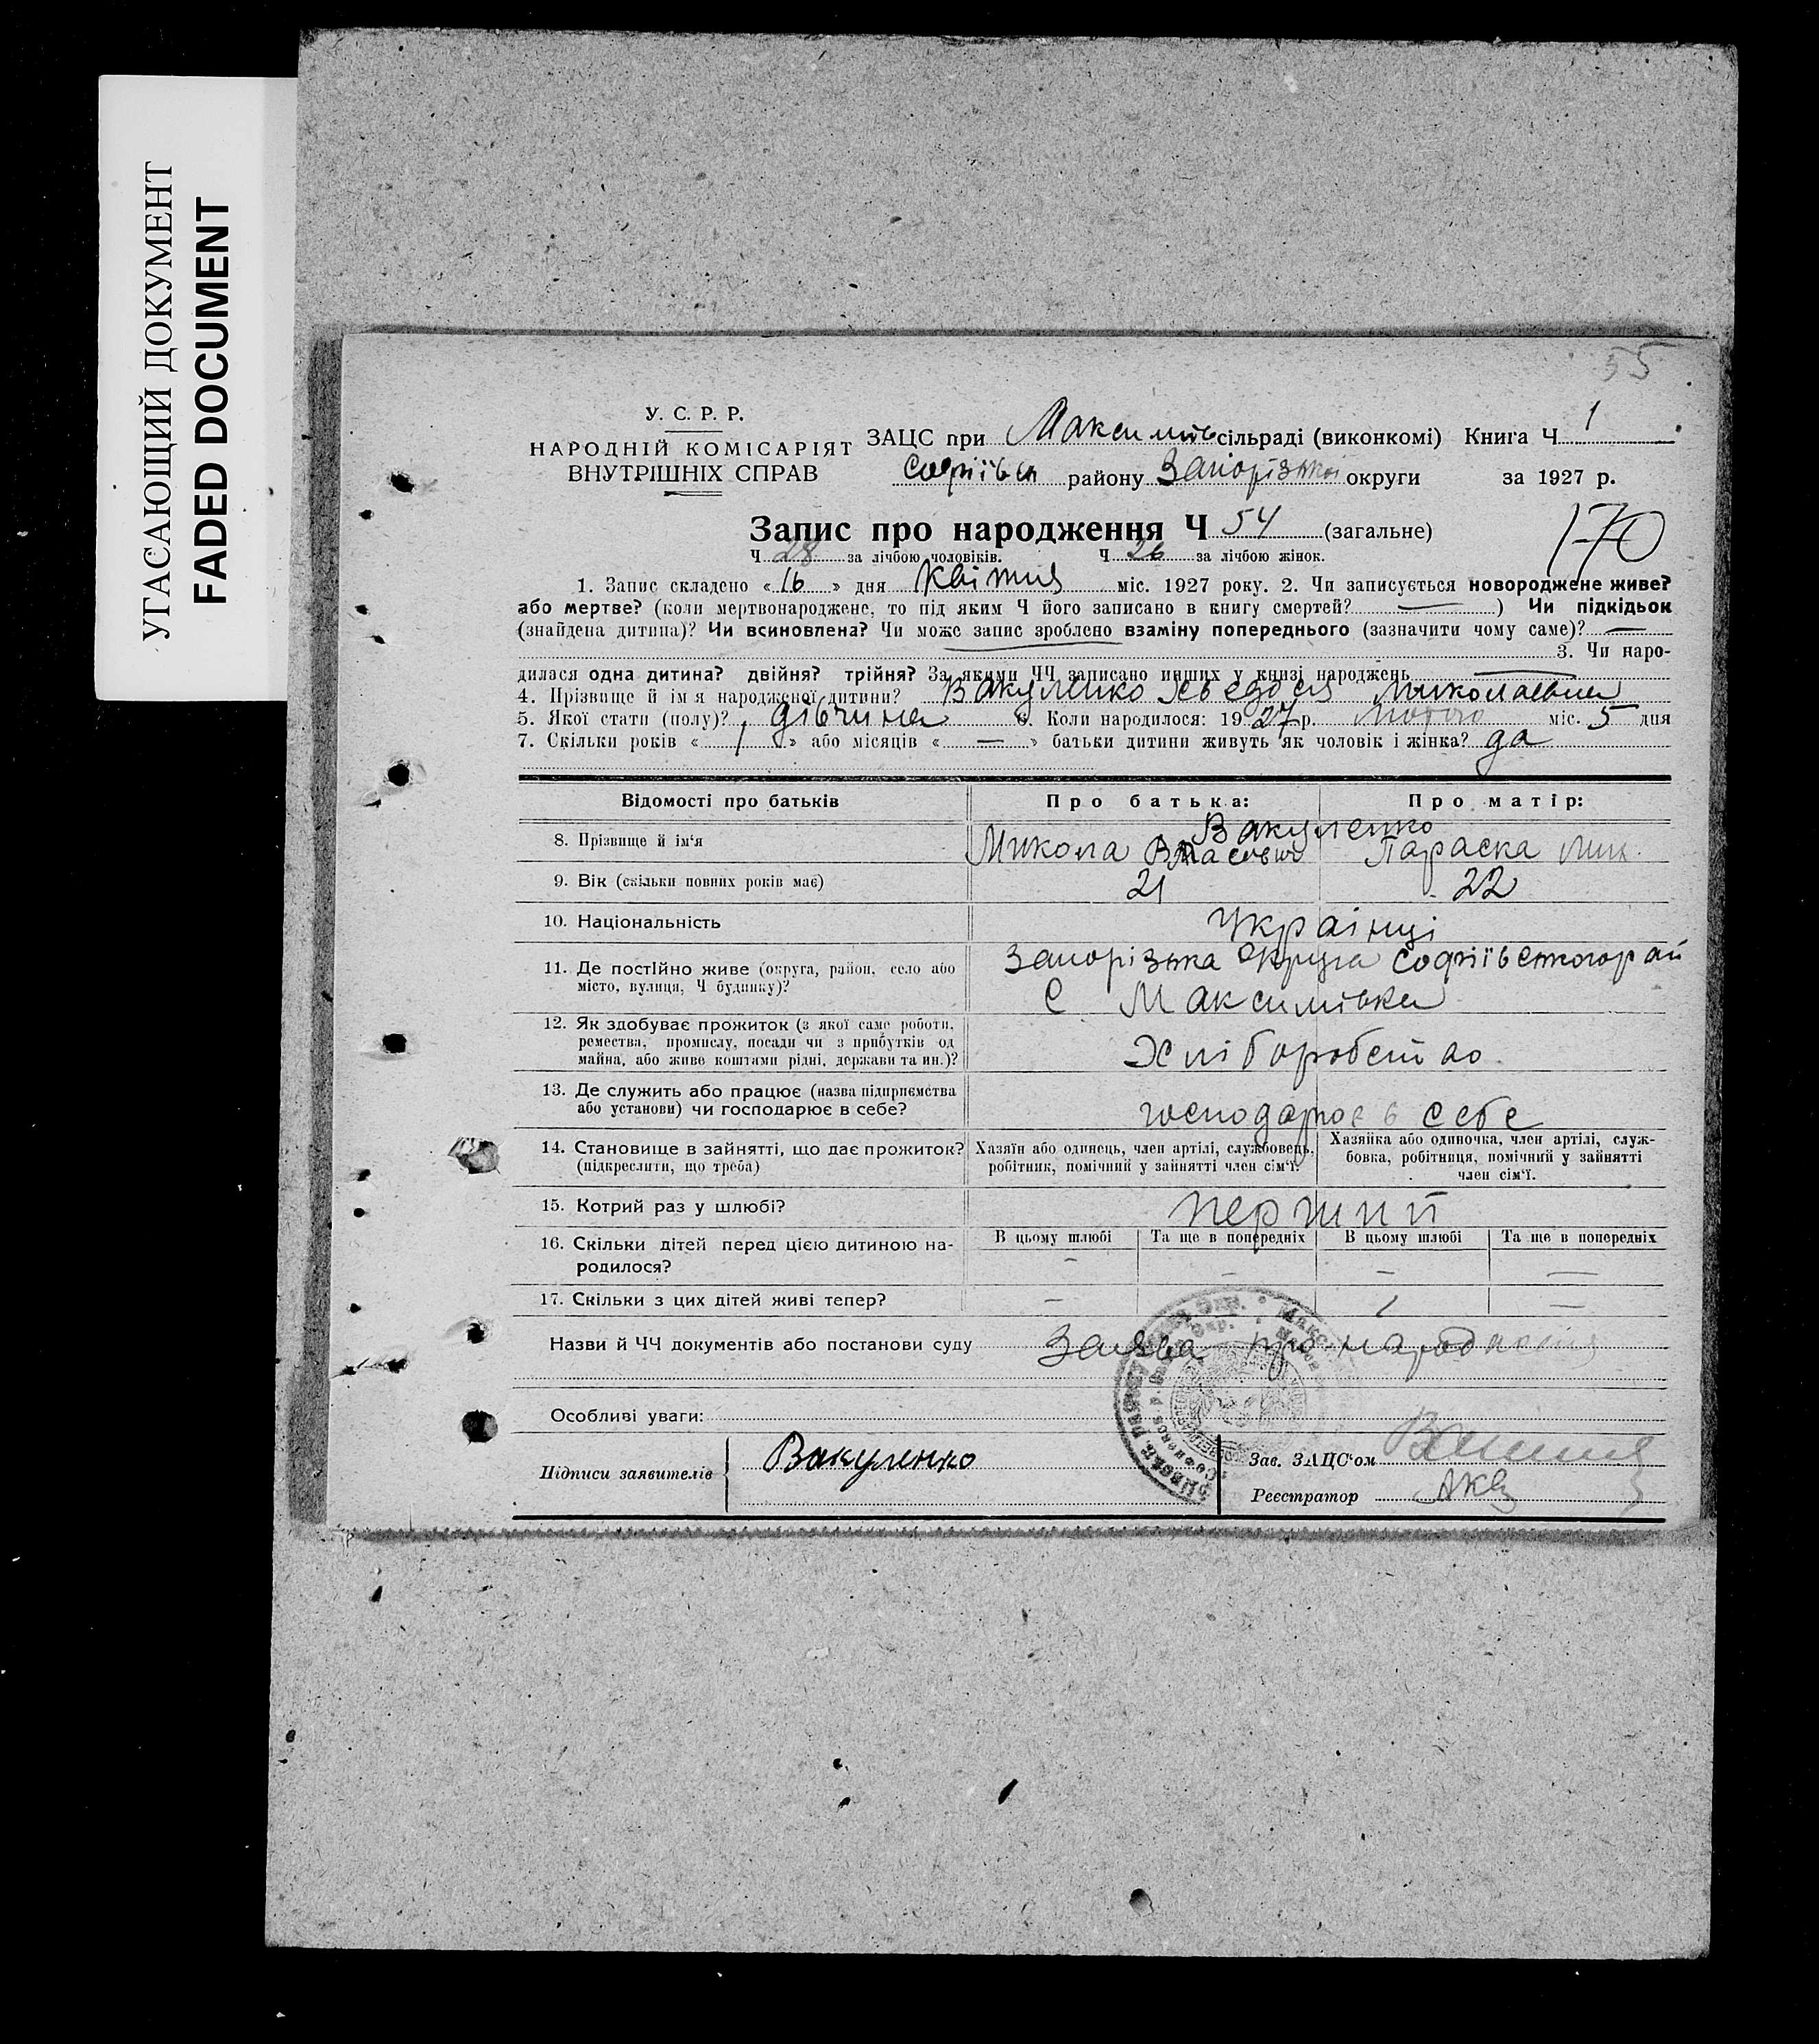 УГАСАЮЩИЙ ДОКУМЕНТ
FADED DOCUMENT
55
У. С. Р. Р.
НАРОДНІЙ КОМІСАРІЯТ
ВНУТРІШНІХ СПРАВ
ЗАЦС при Максимів сільраді (виконкомі) Книга Ч 1
Софіївск району Запорізької округи за 1927 р.
Запис про народження Ч 54 (загальне)
170
Ч 28 за лічбою чоловіків. Ч 26 за лічбою жінок.
1. Запис складено «16» дня квітня міс. 1927 року. 2. Чи записується новороджене живе?
або мертве? (коли мертвонароджене, то під яким Ч його записано в книгу смертей? —) Чи підкідьок
(знайдена дитина)? Чи всиновлена? Чи може запис зроблено взаміну попереднього (зазначити чому саме)? —
3. Чи наро-
дилася одна дитина? двійня? трійня? За якими ЧЧ записано инших у книзі народжень —
4. Прізвище й ім я народженої дитини? Вакуленко Хведося Миколаевна
5. Якої стати (полу)? дівчина 6. Коли народилося: 1927 р. Лютого міс. 5 дня
7. Скільки років « 1 » або місяців « — » батьки дитини живуть як чоловік і жінка? да
Відомості про батьків Про батька: Про матір:
Вакуленко
8. Прізвище й ім'я Микола Власович Параска Мик.
9. Вік (скільки повних років має) 21 22
10. Національність Українці
11. Де постІйно живе (округа, район, село або Запорізька Округа Софіївського рай
місто, вулиця, Ч будинку)? С Максимівка
12. Як здобуває прожиток (з якої саме роботи,
ремества, промислу, посади чи з прибутків од
майна, або живе коштами рідні, держави та ин.)? Хліборобство
13. Де служить або працює (назва підприємства
або установи) чи господарює в себе? господарює в себе
14. Становище в зайнятті, що дає прожиток? Хазяїн або одинець, член артілі, службовець, Хазяйка або одиночка, член артілі, служ-
(підкреслити, що треба) робітник, помічний у зайнятті член сім'ї. бовка, робітниця, помічний у зайнятті
член сім'ї.
15. Котрий раз у шлюбі? перший
16. Скільки дітей перед цією дитиною на- В цьому шлюбі Та ще в попередніх В цьому шлюбі Та ще в попередніх
родилося? — — — —
17. Скільки з цих дітей живі тепер? — 1 —
Назви й ЧЧ документів або постанови суду Заява про народження
Особливі уваги:
Підписи заявителів Вакуленко
Зав. ЗАЦС'ом
Реєстратор